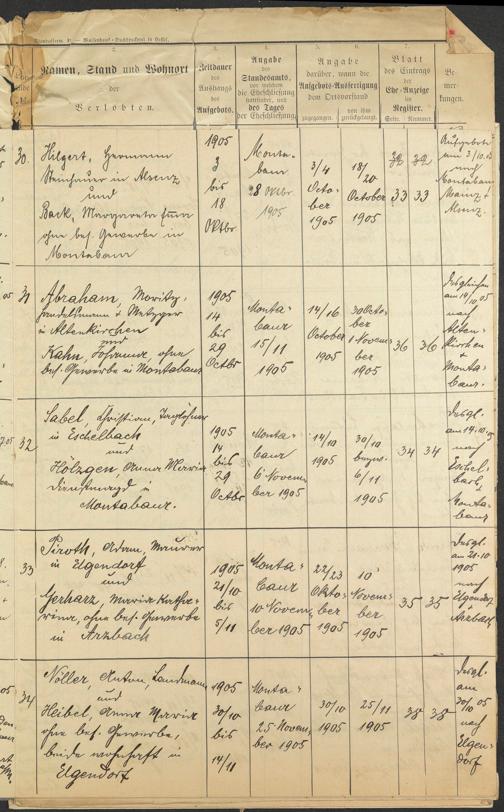 2.
Namen, Stand und Wohnort
der
Verlobten.
Zeitdauer
des
Aushangs
des
Aufgebots.
Angabe
des
Standesamts,
vor welchem
die Eheschließung
stattfindet, und
des Tages
der Eheschließung.
5. 6.
Angabe
darüber, wann die
Aufgebots-Ausfertigung
dem Ortsvorstand
zugegangen.
von ihm
zurückgelangt.
7.
Blatt
des Eintrags
der
Ehe-Anzeige
im
Register.
Seite. Nummer.
Be-
mer-
kungen.
30.
Hilgert, Hermann
Steinhauer in Alsenz
und
Back, Margareta
ohne bes. Gewerbe in
Montabaur
1905
3
bis
18
Oktbr
Monta-
baur
28 Oktbr
1905
3/4
Octo-
ber
1905
18/
20
October
1905
33 33
Montabaur
Mainz +
Alsenz.
31
Abraham, Moritz,
Handelsmann + Metzger
in Altenkirchen
und
Kahn, Johanna, ohne
bes. Gewerbe in Montabaur
1905
14
bis
29
Octbr
Monta-
baur
15/11
1905
14/16
October
1905
30 Octo-
ber
1 Novem-
ber
1905
36 36
desgleichen
am 14/10 05
nach
Alten-
kirchen
+
Monta-
baur.
32
Sabel, Christian, Taglöhner
in Eschelbach
und
Hölzgen, Anna Maria
Dienstmagd in
Montabaur.
1905
14
bis
29
Octbr
Monta-
baur
6 Novem-
ber 1905
14/10
1905
30/10
bezw.
6/11
1905
34 34
desgl.
am 14.10.05
nach
Eschel-
bach,
Monta-
baur
33
Piroth, Adam, Maurer
in Elgendorf
und
Gerharz, Maria Katha-
rina, ohne bes. Gewerbe
in Arzbach
1905
21/10
bis
5/11
Monta-
baur
10 Novem-
ber 1905
22/23
Okto-
ber
1905
10
Novem-
ber
1905
35 35
desgl.
am 21.10
1905
nach
Elgendorf
Arzbach
34
Nöller, Anton, Landmann
und
Heibel, Anna Maria
ohne bes. Gewerbe,
beide wohnhaft in
Elgendorf
1905
30/10
bis
14/11
Monta-
baur
25 Novem-
ber 1905
30/10
1905
25/11
1905
38 38
desgl.
am
30/10 05
nach
Elgen-
dorf